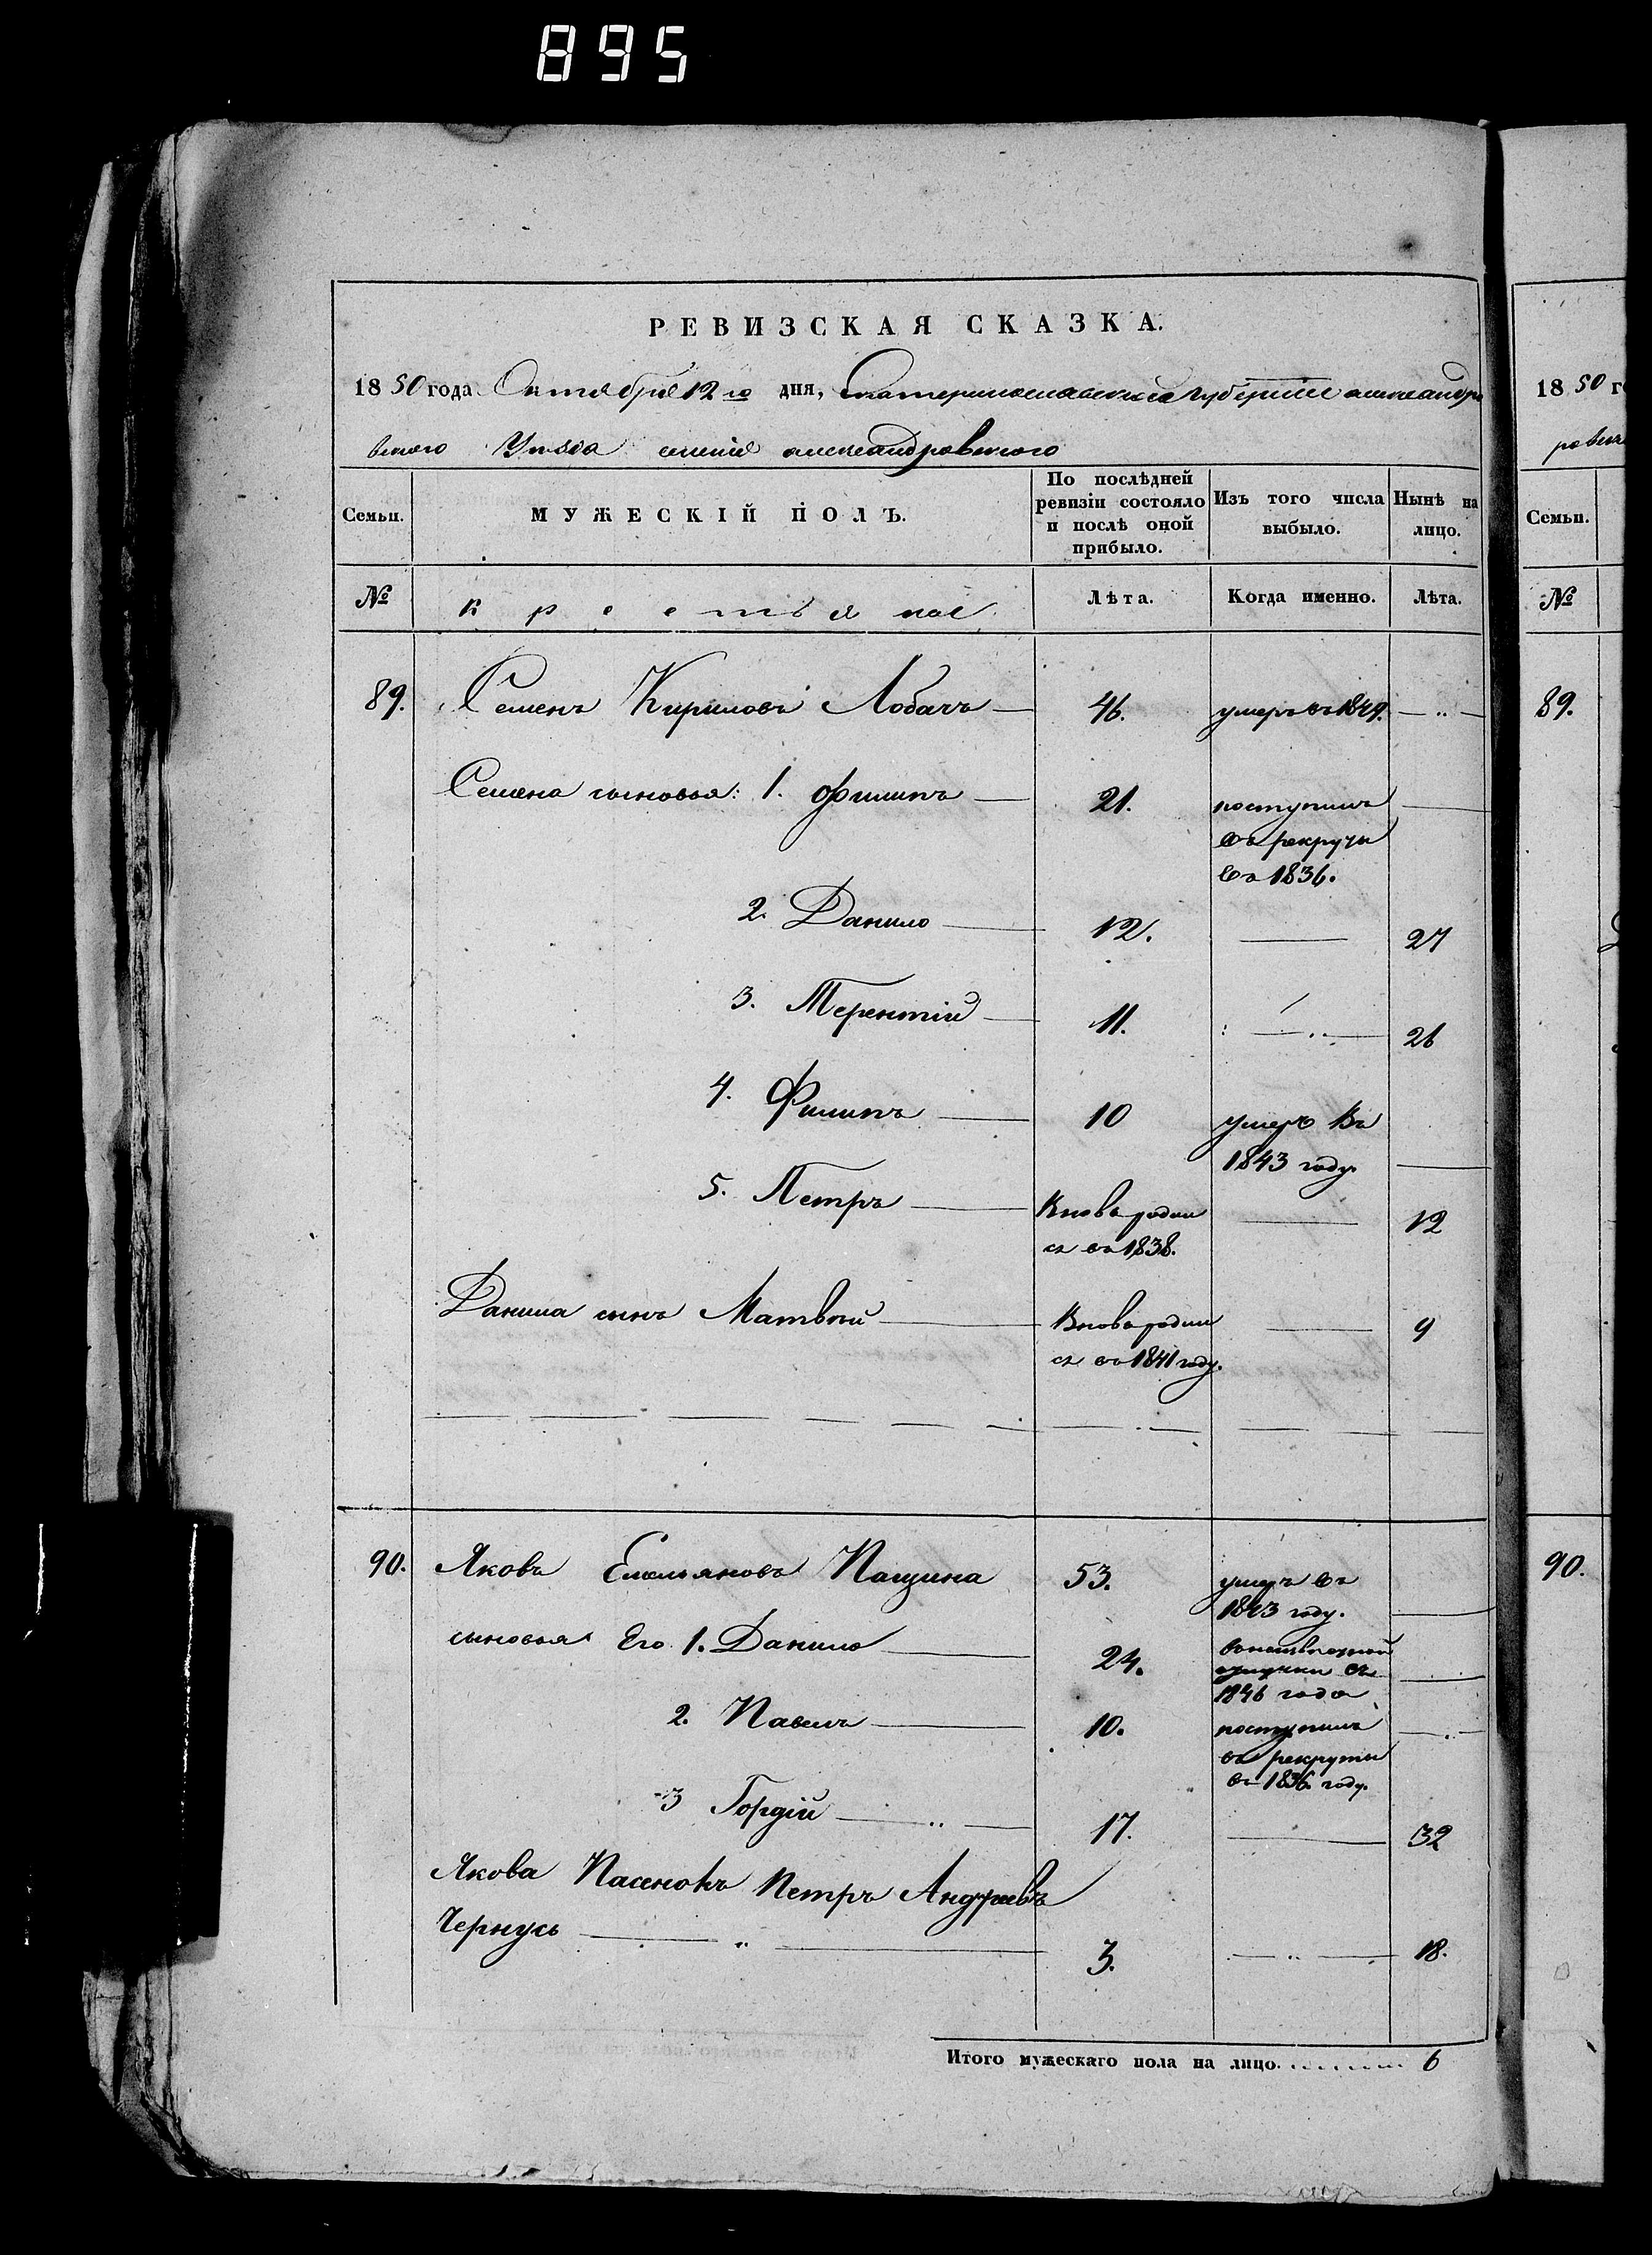 895
РЕВИЗСКАЯ СКАЗКА.
1850 года Октября 12го дня, Екатеринославской губернии александро
вского Уѣзда селенія александровского
Семьи.
МУЖЕСКІЙ ПОЛЪ.
По послѣдней ревизіи состояло и послѣ оной прибыло.
Изъ того числа выбыло.
Нынѣ на лицо.
№ крестьяне Лѣта. Когда именно. Лѣта.
89. Семенъ Кириловъ Лобачъ 46. умеръ въ 1849.
Семена сыновья: 1. Филипъ 21. поступилъ
въ рекруты
въ 1836.
2. Данило 12. 27
3. Терентій 11. 26
4. Филипъ 10 умеръ въ
1843 году.
5. Петръ Вновь родил
ся въ 1838. 12
Данила сынъ Матвѣй Вновь родил
ся въ 1841 году. 9
90. Яковъ Емельяновъ Пащина 53. умеръ въ
1843 году.
сыновья Его 1. Данило 24.
въ
1846 года
2. Павелъ 10. поступилъ
въ рекруты
въ 1836. году.
3 Гордій 17. 32
Якова Пасенокъ Петръ Андреевъ
Чернусь 3. 18.
Итого мужескаго пола на лицо. 6
18 50 г
ровск
Семьи.
№
89.
90.